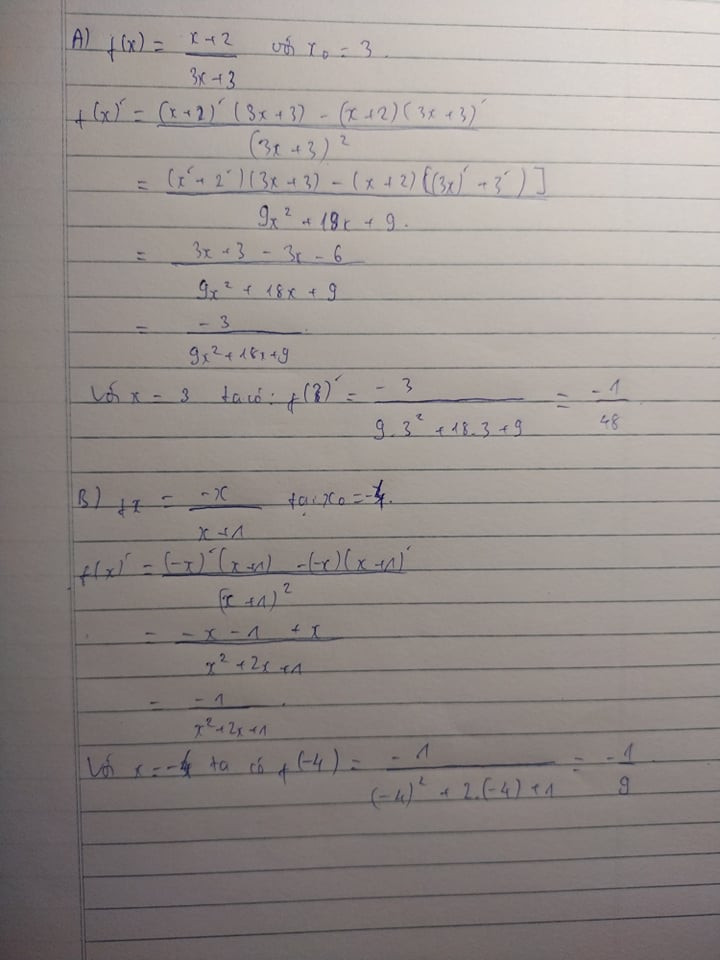 A) f(x) = (x+2)/(3x+3) với x₀ = 3.
f(x)' = [(x+2)'(3x+3) - (x+2)(3x+3)']/(3x+3)²
= (x'+2')(3x+3) - (x+2)[(3x)'+3')]/(9x²+18x+9).
= (3x+3-3x-6)/(9x²+18x+9)
= -3/(9x²+18x+9)
Với x = 3 ta có: f(3)' = -3/(9.3²+18.3+9) = -1/48
B) fx = -x/(x+1) tại x₀ = -4.
f(x)' = [(-x)'(x+1) -(-x)(x+1)']/(x+1)²
= (-x-1+x)/(x²+2x+1)
= -1/(x²+2x+1).
Với x = -4 ta có f(-4) = -1/((-4)²+2.(-4)+1) = -1/9